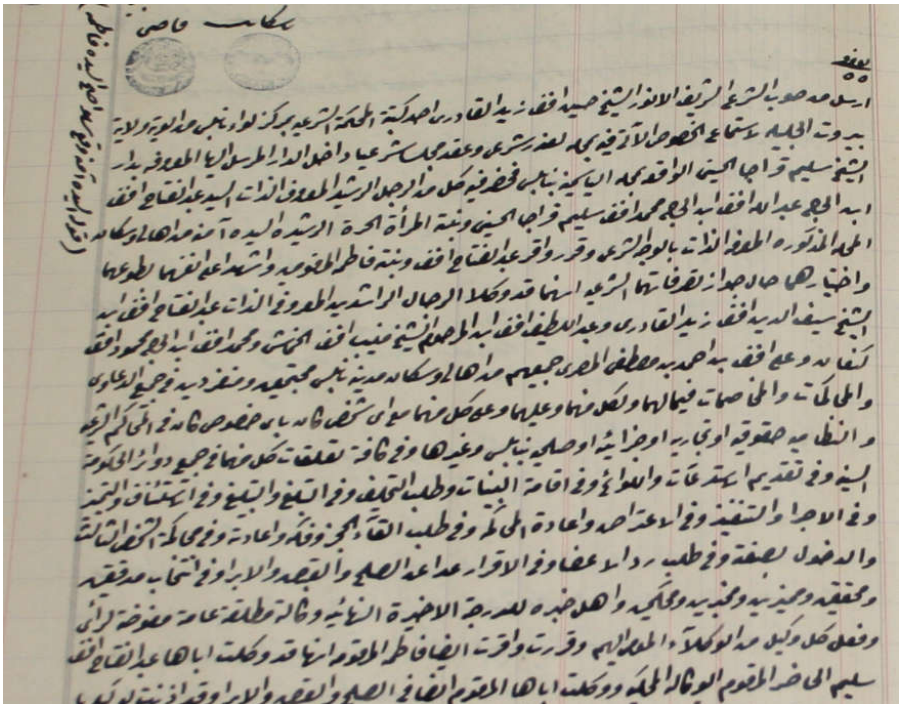 سكات قاضي
نمرو
٥٥
ارسل من صوب الشرع الشريف الانور الشيخ حسين افندي زيد القادري احد كتبة المحكمة الشرعيه بمركز لواء نابلس من الوية ولاية
بيروت الجليله لاستماع الخصوص الآتي فيه بمحله لعذر شرعي وعقد مجلس شرعيا داخل الدار المرسل اليها المعروفه بدار
الشيخ سليم قراجا الحسيني الواقعه بمحله الياسمينه بنابلس فحضر فيه كل من الرجل الرشيد المعروف الذات السيد عبد الفتاح افندي
ابن الحاج عبد الله افندي ابن الحاج محمد افندي سليم قراجا الحسيني وبنته المرأة الحرة الرشيده السيده آمنه من اهالي وسكان
المحله المذكوره المعرفه الذات بالوجه الشرعي وقرر واقر عبد الفتاح افندي وبنته فاطمه المرقومين واشهدا على انفسهما بطوعهما
واختيارهما حال جواز تصرفاتهما الشرعيه انهما قد وكلا الرجال الراشدين المعروفي الذات عبد الفتاح افندي ابن
الشيخ سيف الدين افندي زيد القادري وعبد اللطيف افندي ابن المرحوم الشيخ منيب افندي الخماش ومحمد افندي ابن الحاج محمود افندي
كنعان وعلي افندي بن احمد بن مصطفى المصري جميعهم من اهالي وسكان مدينة نابلس مجتمعين ومنفردين في جميع الدعاوى
والمحاكمات والمخاصمات فيما لهما ولكل منهما وعليهما وعلى كل منهما مع اي شخص كان باي خصوص كان في المحاكم الشرعيه
والنظاميه حقوقيه او تجاريه او جزائيه او صلحيه بنابلس وغيرها وفي كافة تعلقات كل منهما في جميع دوائر الحكومة
السنيه وفي تقديم استدعآت واللوائح وفي اقامة البينات وطلب التحليف وفي التبلغ والتبليغ وفي الاستئناف والتمييز
وفي الاجراء والتنفيذ وفي الاعتراض واعادة المحاكمه وفي طلب القآء الحجز وفكه واعادته وفي محاكمة الشخص الثالث
والدخول بصفته وفي طلب رد الاعضا وفي الاقرار عدا عن الصلح والقبض والابرا وفي انتخاب مدققين
ومحققين ومميزين ومخبرين ومحكمين واهل خبره للدرجة الاخيرة النهائيه وكالة مطلقة عامة مفوضة لرأي
وفعل كل وكيل من الوكلآء المومى اليهم وقررت واقرت ايضا فاطمه المرقومه انها قد وكلت اباها عبد الفتاح افندي
سليم الحاضر المرقوم الوكاله المحكيه ووكلت اباها المرقوم ايضا في الصلح والقبض والابرا وقد اذنت
(قوله السيده آمنه وقع سهوا صح السيده فاطمه)